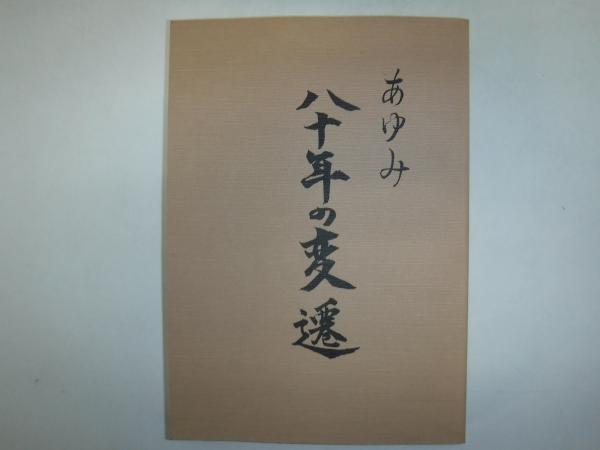 あゆみ
八十年の変遷